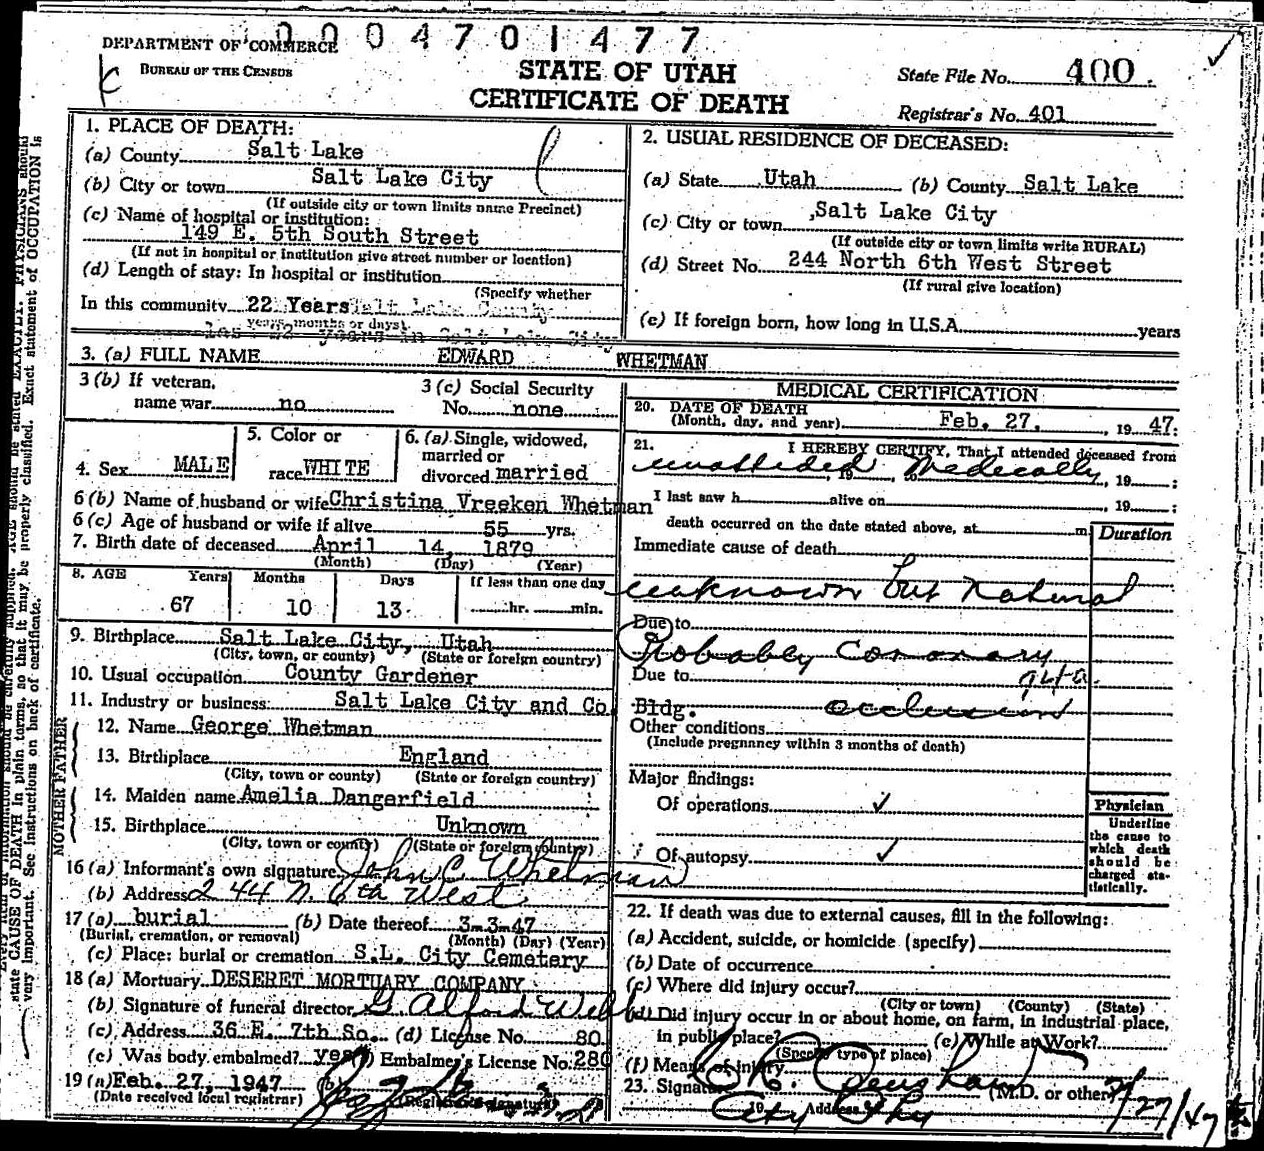 0004701477
DEPARTMENT OF COMMERCE
BUREAU OF THE CENSUS
STATE OF UTAH
CERTIFICATE OF DEATH
State File No. 400.
Registrar's No. 401
1. PLACE OF DEATH:
(a) County Salt Lake
(b) City or town Salt Lake City
(If outside city or town limits name Precinct)
(c) Name of hospital or institution:
149 E. 5th South Street
(If not in hospital or institution give street number or location)
(d) Length of stay: In hospital or institution
(Specify whether
In this community 22 Years Salt Lake County
years, months or days)
years in Salt Lake City
2. USUAL RESIDENCE OF DECEASED:
(a) State Utah (b) County Salt Lake
(c) City or town Salt Lake City
(If outside city or town limits write RURAL)
(d) Street No. 244 North 6th West Street
(If rural give location)
(e) If foreign born, how long in U.S.A. years
3. (a) FULL NAME EDWARD WHETMAN
3 (b) If veteran, name war no
3 (c) Social Security No. none
4. Sex MALE
5. Color or race WHITE
6. (a) Single, widowed, married or divorced married
6 (b) Name of husband or wife Christina Vreeken Whetman
6 (c) Age of husband or wife if alive 55 yrs.
7. Birth date of deceased April 14, 1879
(Month) (Day) (Year)
8. AGE Years Months Days If less than one day
67 10 13 hr. min.
9. Birthplace Salt Lake City, Utah
(City, town, or county) (State or foreign country)
10. Usual occupation County Gardener
11. Industry or business: Salt Lake City and Co. Bldg.
FATHER
12. Name George Whetman
13. Birthplace England
(City, town or county) (State or foreign country)
MOTHER
14. Maiden name Amelia Dangerfield
15. Birthplace Unknown
(City, town or county) (State or foreign country)
16 (a) Informant's own signature John C Whetman
(b) Address 244 N. 6th West
17 (a) burial (b) Date thereof 3-3-47
(Burial, cremation, or removal) (Month) (Day) (Year)
(c) Place: burial or cremation S.L. City Cemetery
18 (a) Mortuary DESERET MORTUARY COMPANY
(b) Signature of funeral director G. Alford Webb
(c) Address 36 E. 7th So. (d) License No. 80
(e) Was body embalmed? yes (f) Embalmer's License No. 280
19 (a) Feb. 27, 1947 (b)
(Date received local registrar) (Registrar's signature)
MEDICAL CERTIFICATION
20. DATE OF DEATH
(Month, day, and year) Feb. 27, 1947:
21. I HEREBY CERTIFY, That I attended deceased from
unattended Medically, 19 :
I last saw h alive on , 19 :
death occurred on the date stated above, at m
Duration
Immediate cause of death
unknown but Natural
Due to
Probably Coronary
Due to 94a
occlusion
Other conditions
(Include pregnancy within 3 months of death)
Major findings:
Of operations ✓
Of autopsy ✓
Physician
Underline the cause to which death should be charged statistically.
22. If death was due to external causes, fill in the following:
(a) Accident, suicide, or homicide (specify)
(b) Date of occurrence
(c) Where did injury occur?
(City or town) (County) (State)
(d) Did injury occur in or about home, on farm, in industrial place, in public place? (e) While at Work?
(Specify type of place)
(f) Means of injury
23. Signature (M.D. or other)
Address City Phy 2/27/47